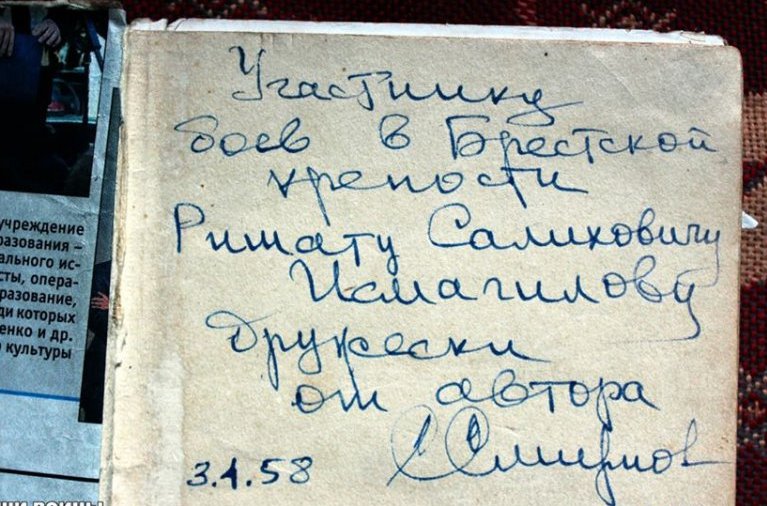 учреждение
разования –
ального ис-
сты, опера-
разование,
ди которых
енко и др.
культуры
Участнику
боев в Брестской
крепости
Ришату Салиховичу
Исмагилову
Дружески
от автора
ССмирнов
3.4.58